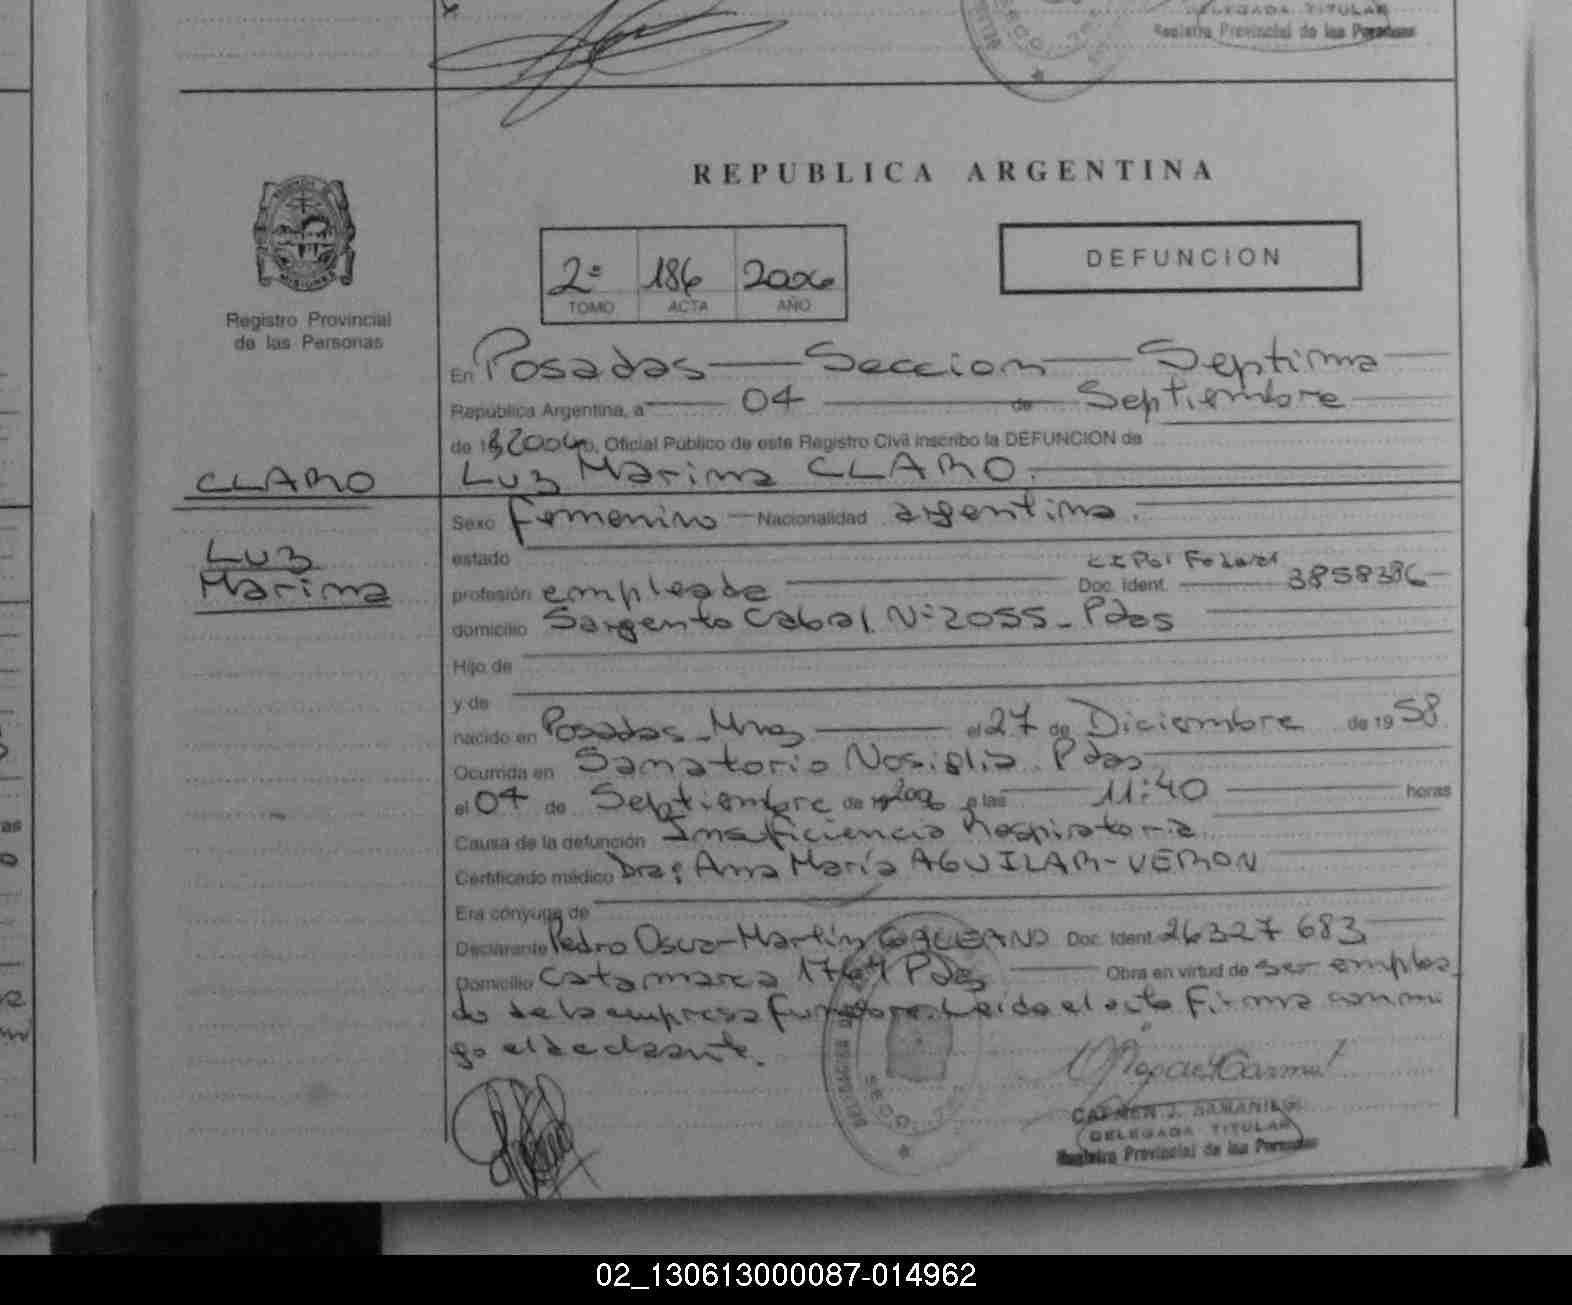 DELEGADA TITULAR
Registro Provincial de las Personas
REPUBLICA ARGENTINA
2º 186 2006
TOMO ACTA AÑO
DEFUNCION
Registro Provincial
de las Personas
En Posadas Seccion Septima
República Argentina, a 04 de Septiembre
de 2006 Oficial Público de este Registro Civil inscribo la DEFUNCION de
Luz Marina CLARO.
CLARO
Luz
Marina
Sexo femenino Nacionalidad argentina.
estado
CI Pol Federal
profesión empleada Doc. Ident. 3858386
domicilio Sargento Cabral Nº 2055 - Pdas
Hijo de
y de
nacido en Posadas - Mnes el 27 de Diciembre de 1958
Ocurrida en Sanatorio Nosiglia Pdas
el 04 de Septiembre de 2006 a las 11:40 horas
Causa de la defunción Insuficiencia Respiratoria
Certificado médico Dra: Ana María AGUILAR-VERON
Era cónyuge de
Declarante Pedro Oscar Martín GALEANO Doc. Ident. 26327683
Domicilio Catamarca 1764 Pdas Obra en virtud de ser emplea
do de la empresa funebre. Leida el acta Firma conmi
go el declarante.
CARMEN J. SAMANIEGO
DELEGADA TITULAR
Registro Provincial de las Personas
02_130613000087-014962